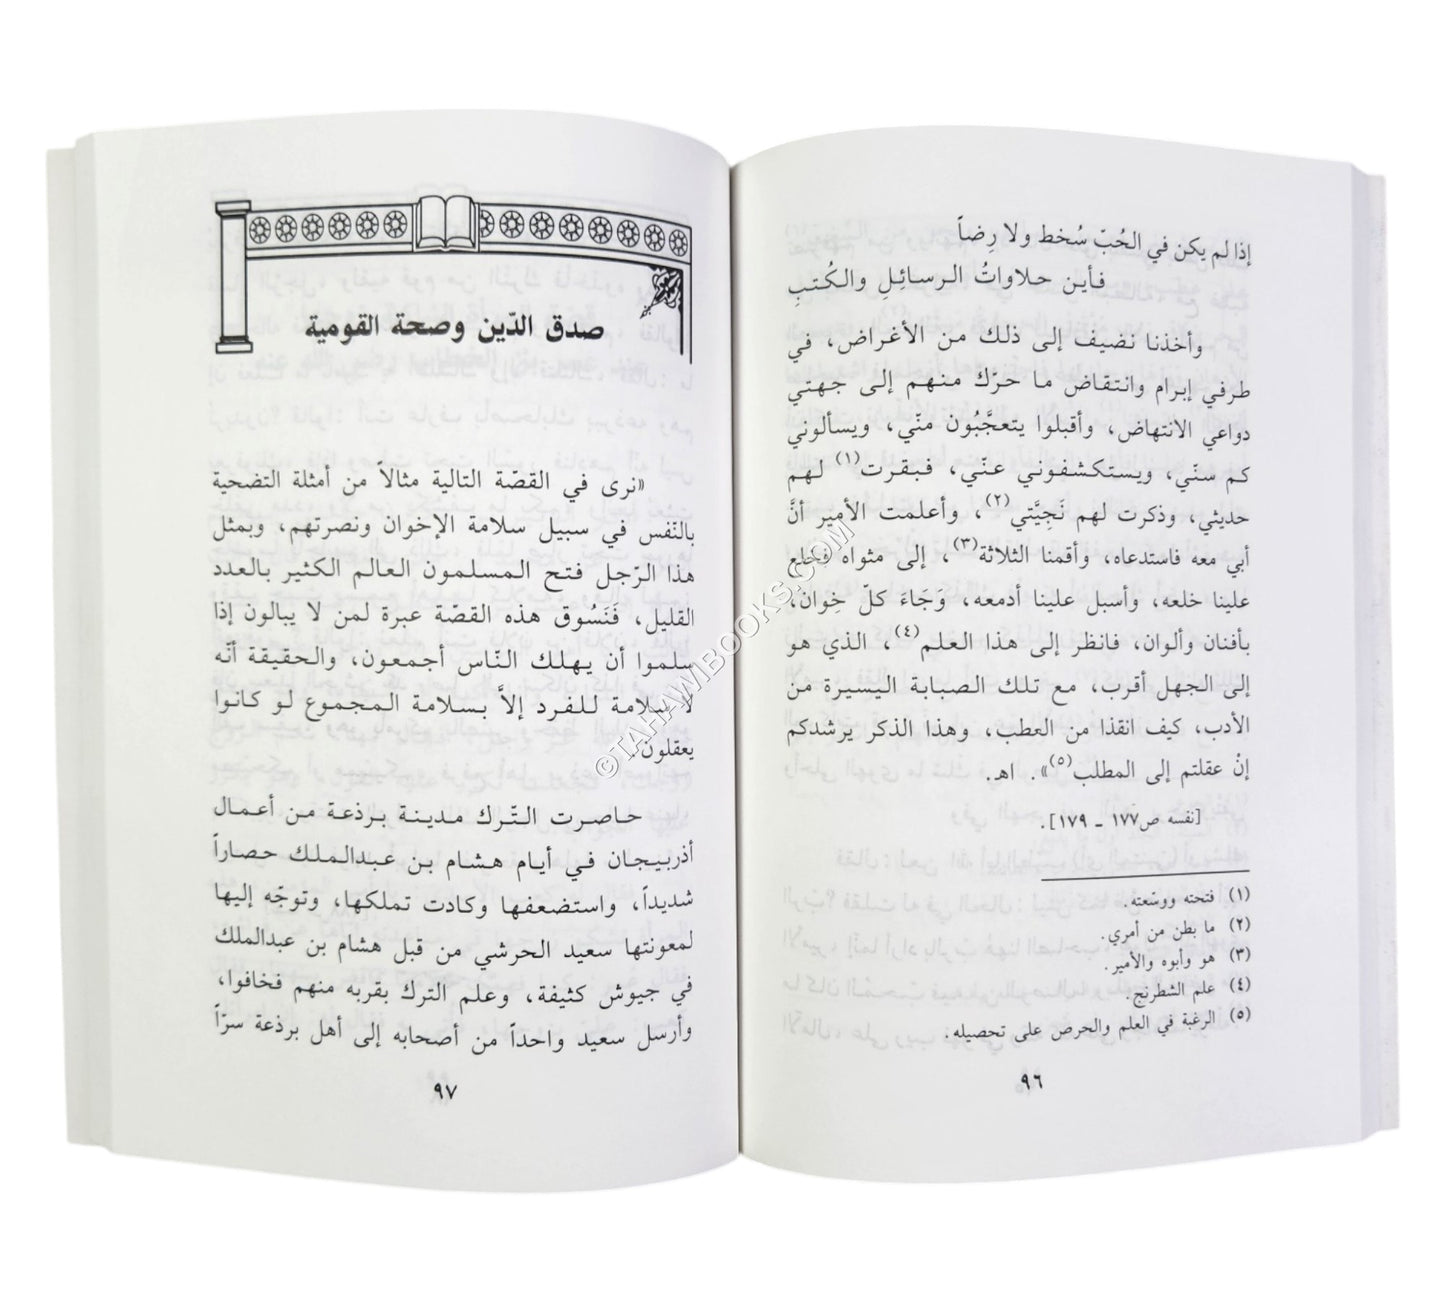 إذا لم يكن في الحُبّ سُخط ولا رِضاً
فأين حلاواتُ الرسائلِ والكُتبِ
وأخذنا نضيف إلى ذلك من الأغراض، في
طرفي إبرام وانتقاض ما حرّك منهم إلى جهتي
دواعي الانتهاض، وأقبلوا يتعجَّبُون منّي، ويسألوني
كم سنّي، ويستكشفوني عنّي، فبقرت(١) لهم
حديثي، وذكرت لهم نَجِيَّتي(٢)، وأعلمت الأمير أنَّ
أبي معه فاستدعاه، وأقمنا الثلاثة(٣)، إلى مثواه فخلع
علينا خلعه، وأسبل علينا أدمعه، وَجَاءَ كلّ خِوان،
بأفنان وألوان، فانظر إلى هذا العلم(٤)، الذي هو
إلى الجهل أقرب، مع تلك الصبابة اليسيرة من
الأدب، كيف انقذا من العطب، وهذا الذكر يرشدكم
إنْ عقلتم إلى المطلب(٥)». اهـ.
[نفسه ص١٧٧ ـ ١٧٩].
(١) فتحته ووسّعته.
(٢) ما بطن من أمري.
(٣) هو وأبوه والأمير.
(٤) علم الشطرنج.
(٥) الرغبة في العلم والحرص على تحصيله.
٩٦
صدق الدّين وصحة القومية
«نرى في القصّة التالية مثالاً من أمثلة التضحية
بالنّفس في سبيل سلامة الإخوان ونصرتهم، وبمثل
هذا الرّجل فتح المسلمون العالم الكثير بالعدد
القليل، فَنَسُوق هذه القصّة عبرة لمن لا يبالون إذا
سلموا أن يهلك النّاس أجمعون، والحقيقة أنّه
لا سلامة للفرد إلاَّ بسلامة المجموع لو كانوا
يعقلون.
حاصرت التّرك مدينة برذعة من أعمال
أذربيجان في أيام هشام بن عبدالملك حصاراً
شديداً، واستضعفها وكادت تملكها، وتوجّه إليها
لمعونتها سعيد الحرشي من قبل هشام بن عبدالملك
في جيوش كثيفة، وعلم الترك بقربه منهم فخافوا،
وأرسل سعيد واحداً من أصحابه إلى أهل برذعة سرّاً
٩٧
©TAHAWIBOOKS.COM